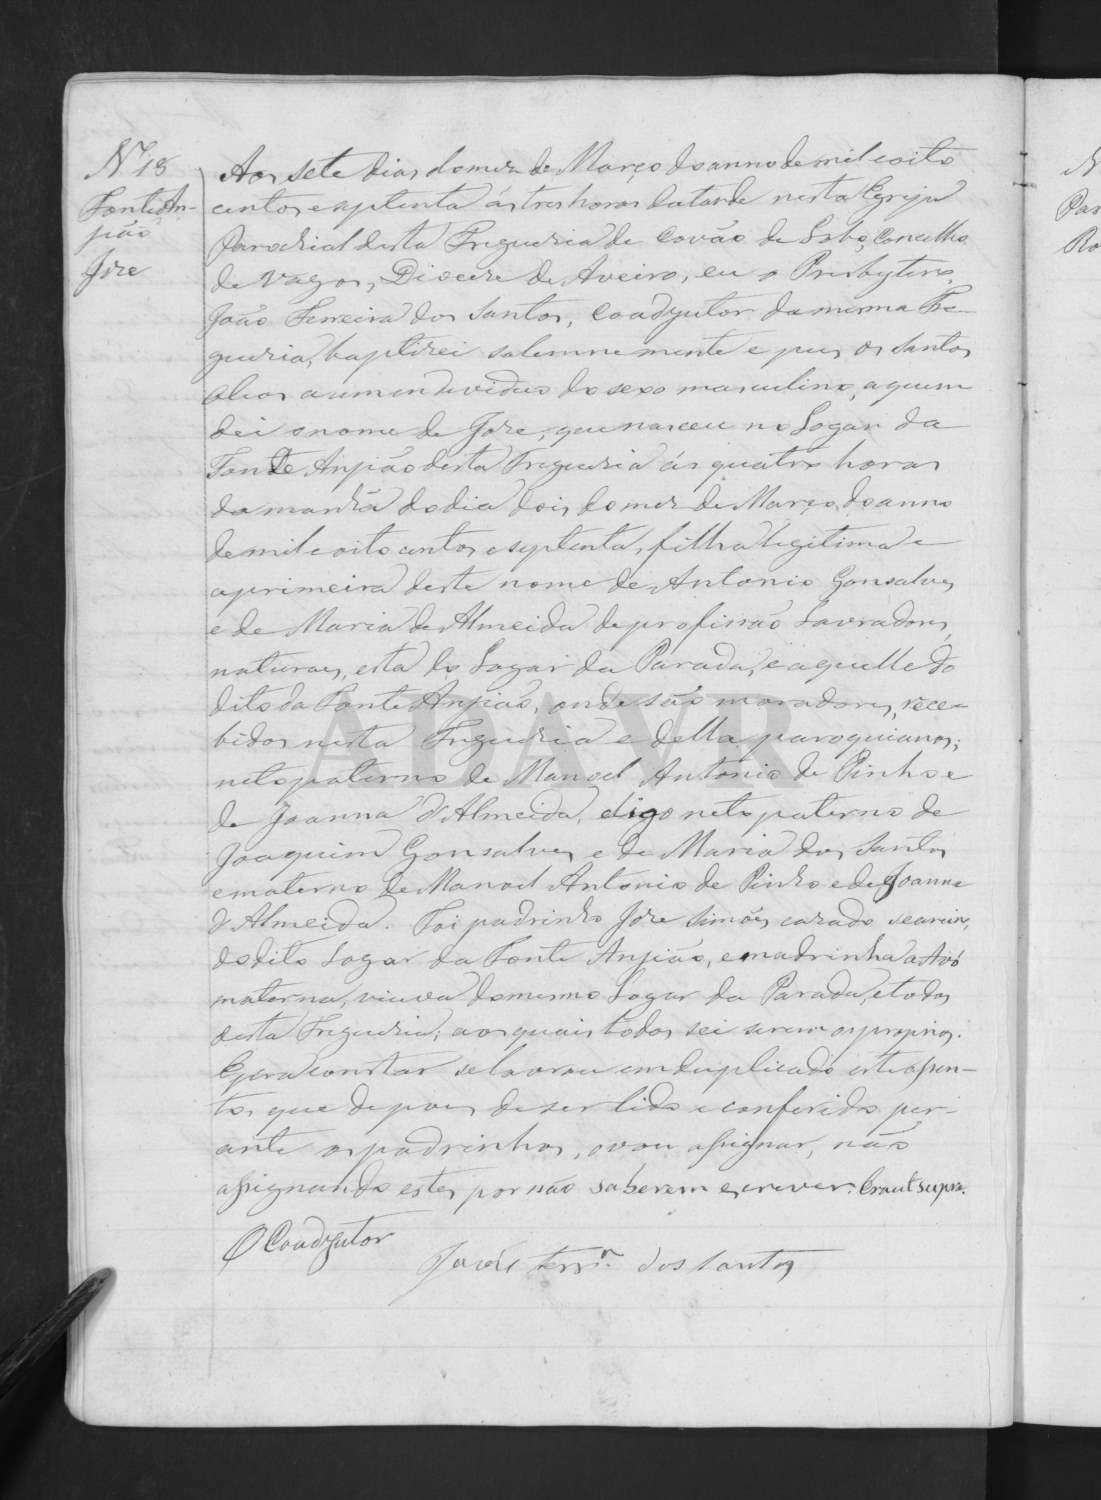 Nº 18
Fonte An-
jião
Joze
Aos sete dias do mez de Março do anno de mil e oito
centos e septenta ás tres horas da tarde nesta Egreja
Parochial desta Freguezia de Covão do Lobo, Concelho
de Vagos, Diocese de Aveiro, eu o Presbytero
João Ferreira dos Santos, Coadjutor da mesma Fre-
guezia, baptizei solemnemente e puz os Santos
Oleos a um individuo do sexo masculino, a quem
dei o nome de Joze, que nasceu no Logar da
Fonte Anjião desta Freguezia ás quatro horas
da manhã do dia dois do mez de Março do anno
de mil e oito centos e septenta, filho legitimo e
o primeiro deste nome de Antonio Gonsalves
e de Maria de Almeida de profissão Lavradores,
naturaes, esta do Logar da Parada, e aquelle do
dito da Fonte Anjião, onde são moradores, rece-
bidos nesta Freguezia e della paroquianos;
neto paterno de Manoel Antonio de Pinho e
de Joanna d'Almeida, digo neto paterno de
Joaquim Gonsalves e de Maria dos Santos
e materno de Manoel Antonio de Pinho e de Joanna
d'Almeida. Foi padrinho Joze Simões, cazado
do dito Logar da Fonte Anjião, e madrinha a Avó
materna, viuva do mesmo Logar da Parada, e todos
desta Freguezia; aos quais todos sei serem os proprios.
E para constar se lavrou em duplicado este assen-
to, que depois de ser lido e conferido per-
ante os padrinhos, o vou assignar, não
assignando estes por não saberem escrever. Era ut supra.
O Coadjutor
João Ferrª. dos Santos
ADAVR